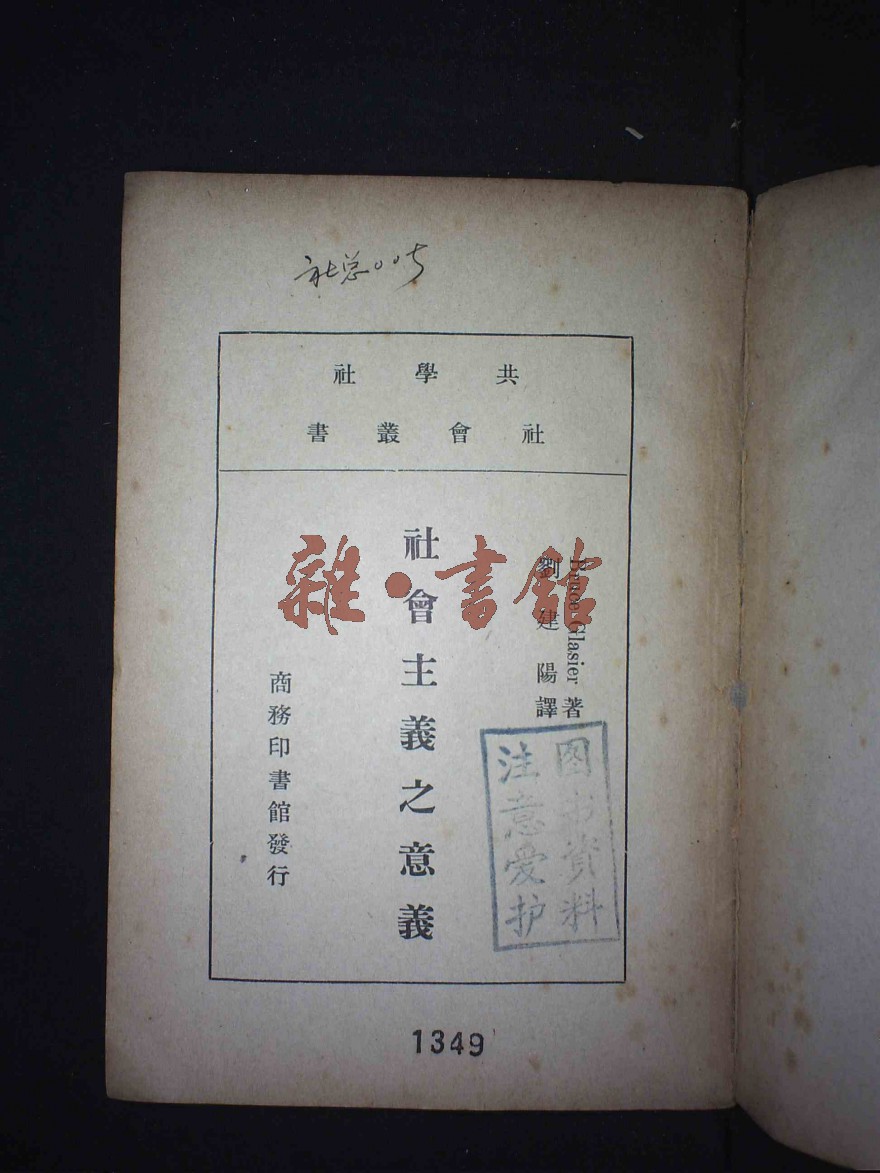 社总005
共學社
社會叢書
Bruce Glasier 著
劉建陽譯
社會主義之意義
商務印書館發行
图书資料
注意爱护
雜·書館
1349